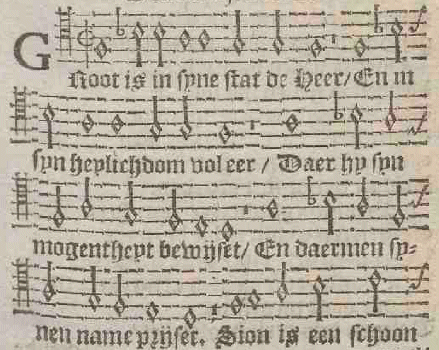 GRoot is in syne stat de Heer/ En in
syn heylichdom vol eer / Daer hy syn
mogentheyt bewijset/ En daermen sy-
nen name prijset. Sion is een schoon